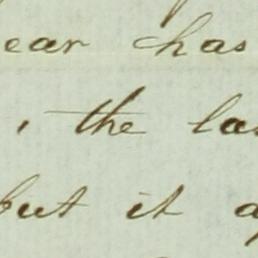 ear has
, the las
but it a